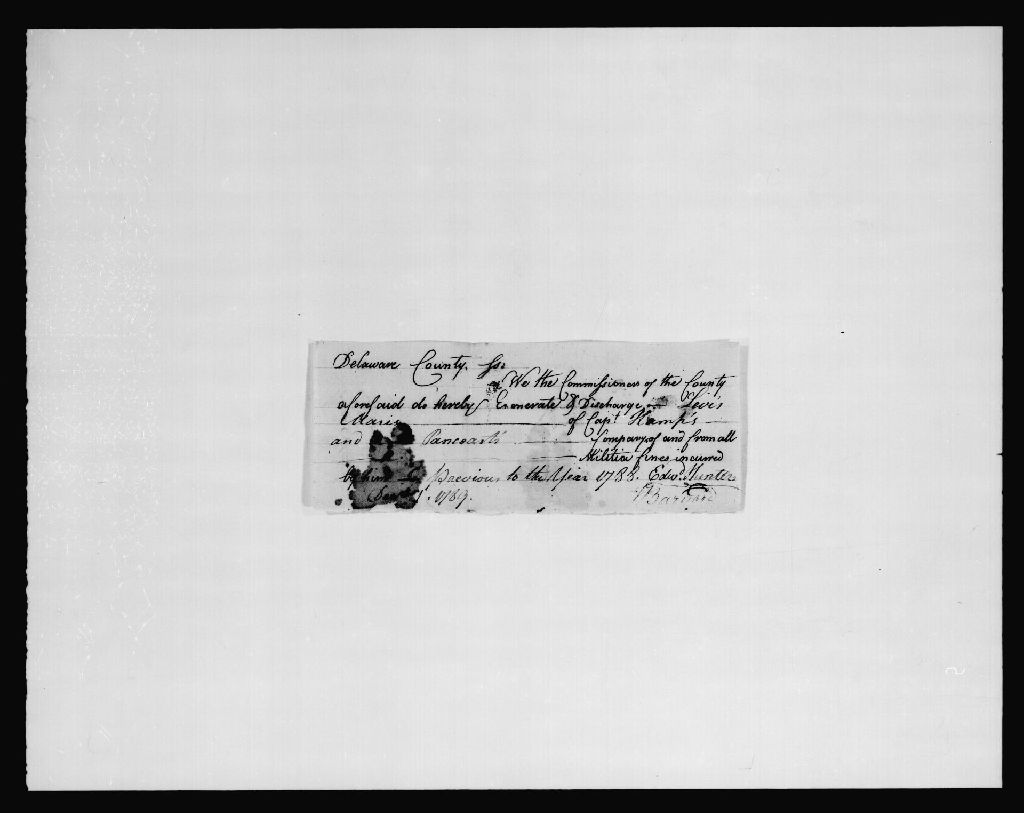 Delaware County. Ss:
We the Commissioners of the County
aforesaid do hereby Exonerate & Discharge Levis
Maris of Capt Kemp's
and Pancoast's Company, of and from all
Militia fines incurred
by him Previous to the Year 1788. Edwd Hunter
1789. Barnard